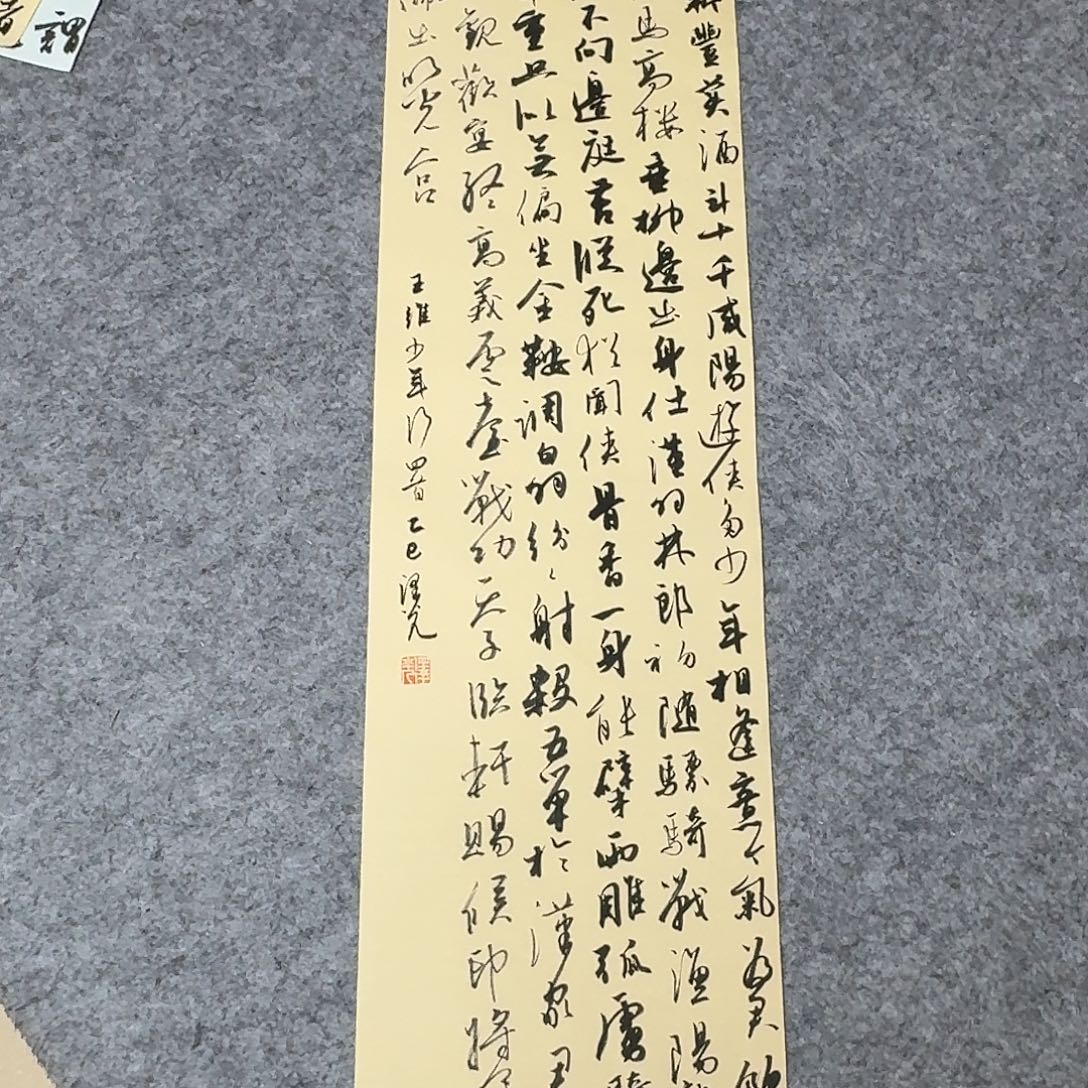 新豐美酒斗十千咸陽遊俠多少年相逢意々氣為君飲
馬高樓垂柳邊出身仕漢羽林郎初隨驃騎戰漁陽
不向邊庭苦縱死猶聞俠骨香一身能擘兩雕弧虜騎
重只似無偏坐金鞍調白羽紛々射殺五單於漢家君
觀歡宴終高義雲臺戰功天子臨軒賜侯印將軍
佩出明光宮
王維少年行四首乙巳